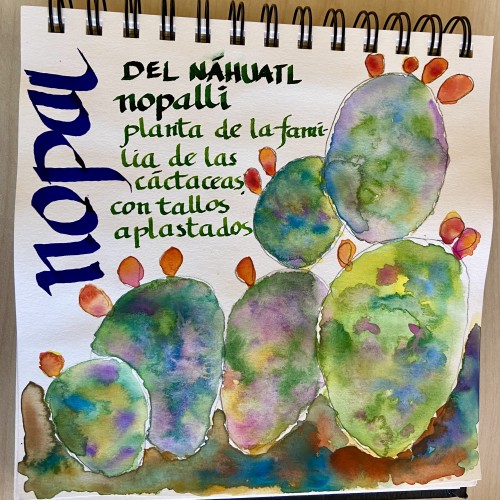 nopal
DEL NÁHUATL
nopalli
planta de la fami-
lia de las
cáctaceas,
con tallos
aplastados